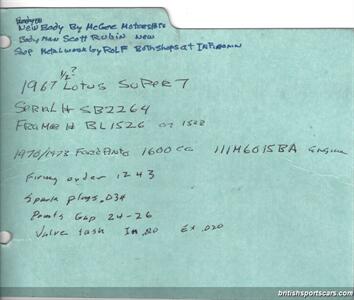 New Body By McGee Motorsports
Body Man Scott Rubin New
Shop Metalwork by Rolf Both shops at In
1/2?
1967 Lotus Super 7
Serial # SB2264
Frame # BL1526 or 1522
1970/1973 Ford Pinto 1600cc 111M6015BA Engine
Firing order 1243
Spark plugs .034
Points Gap 24-26
Valve lash In .20 Ex .020
britishsportscars.com